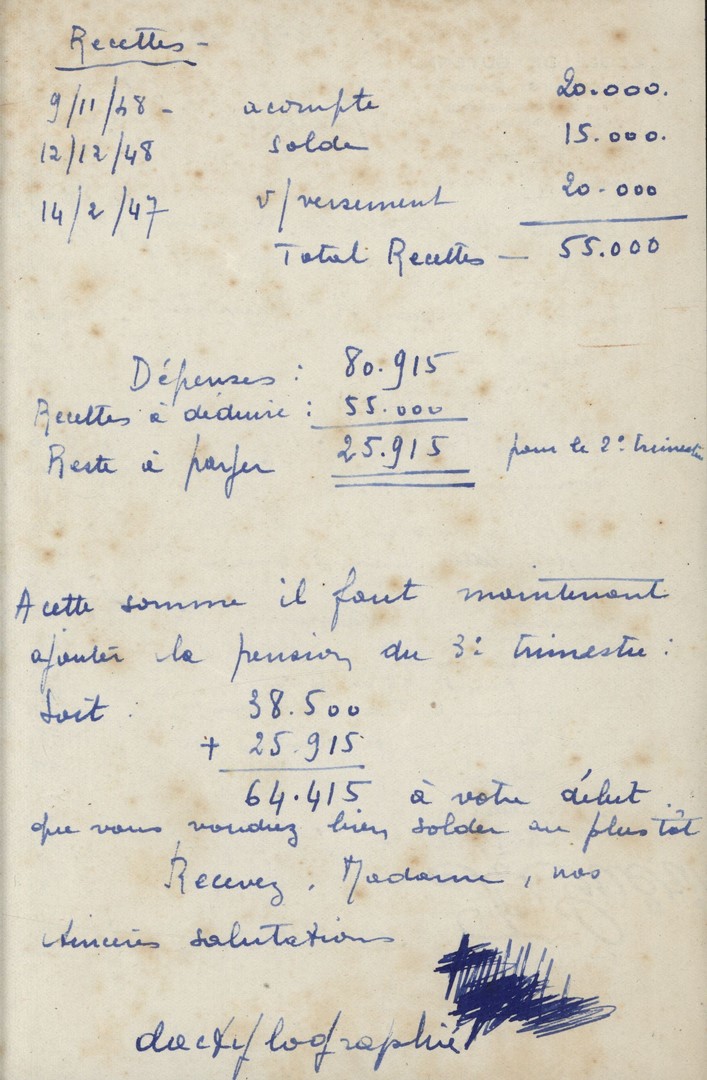 Recettes -
9/11/48 - acompte 20.000.
12/12/48 solde 15.000.
14/2/47 v/versement 20.000
Total Recettes - 55.000
Dépenses : 80.915
Recettes à déduire : 55.000
Reste à payer 25.915 pour le 2e trimestre
A cette somme il faut maintenant
ajouter la pension du 3e trimestre :
Soit : 38.500
+ 25.915
64.415 à votre débit.
que vous voudrez bien solder au plus tôt
Recevez, Madame, nos
sincères salutations
dactylographié